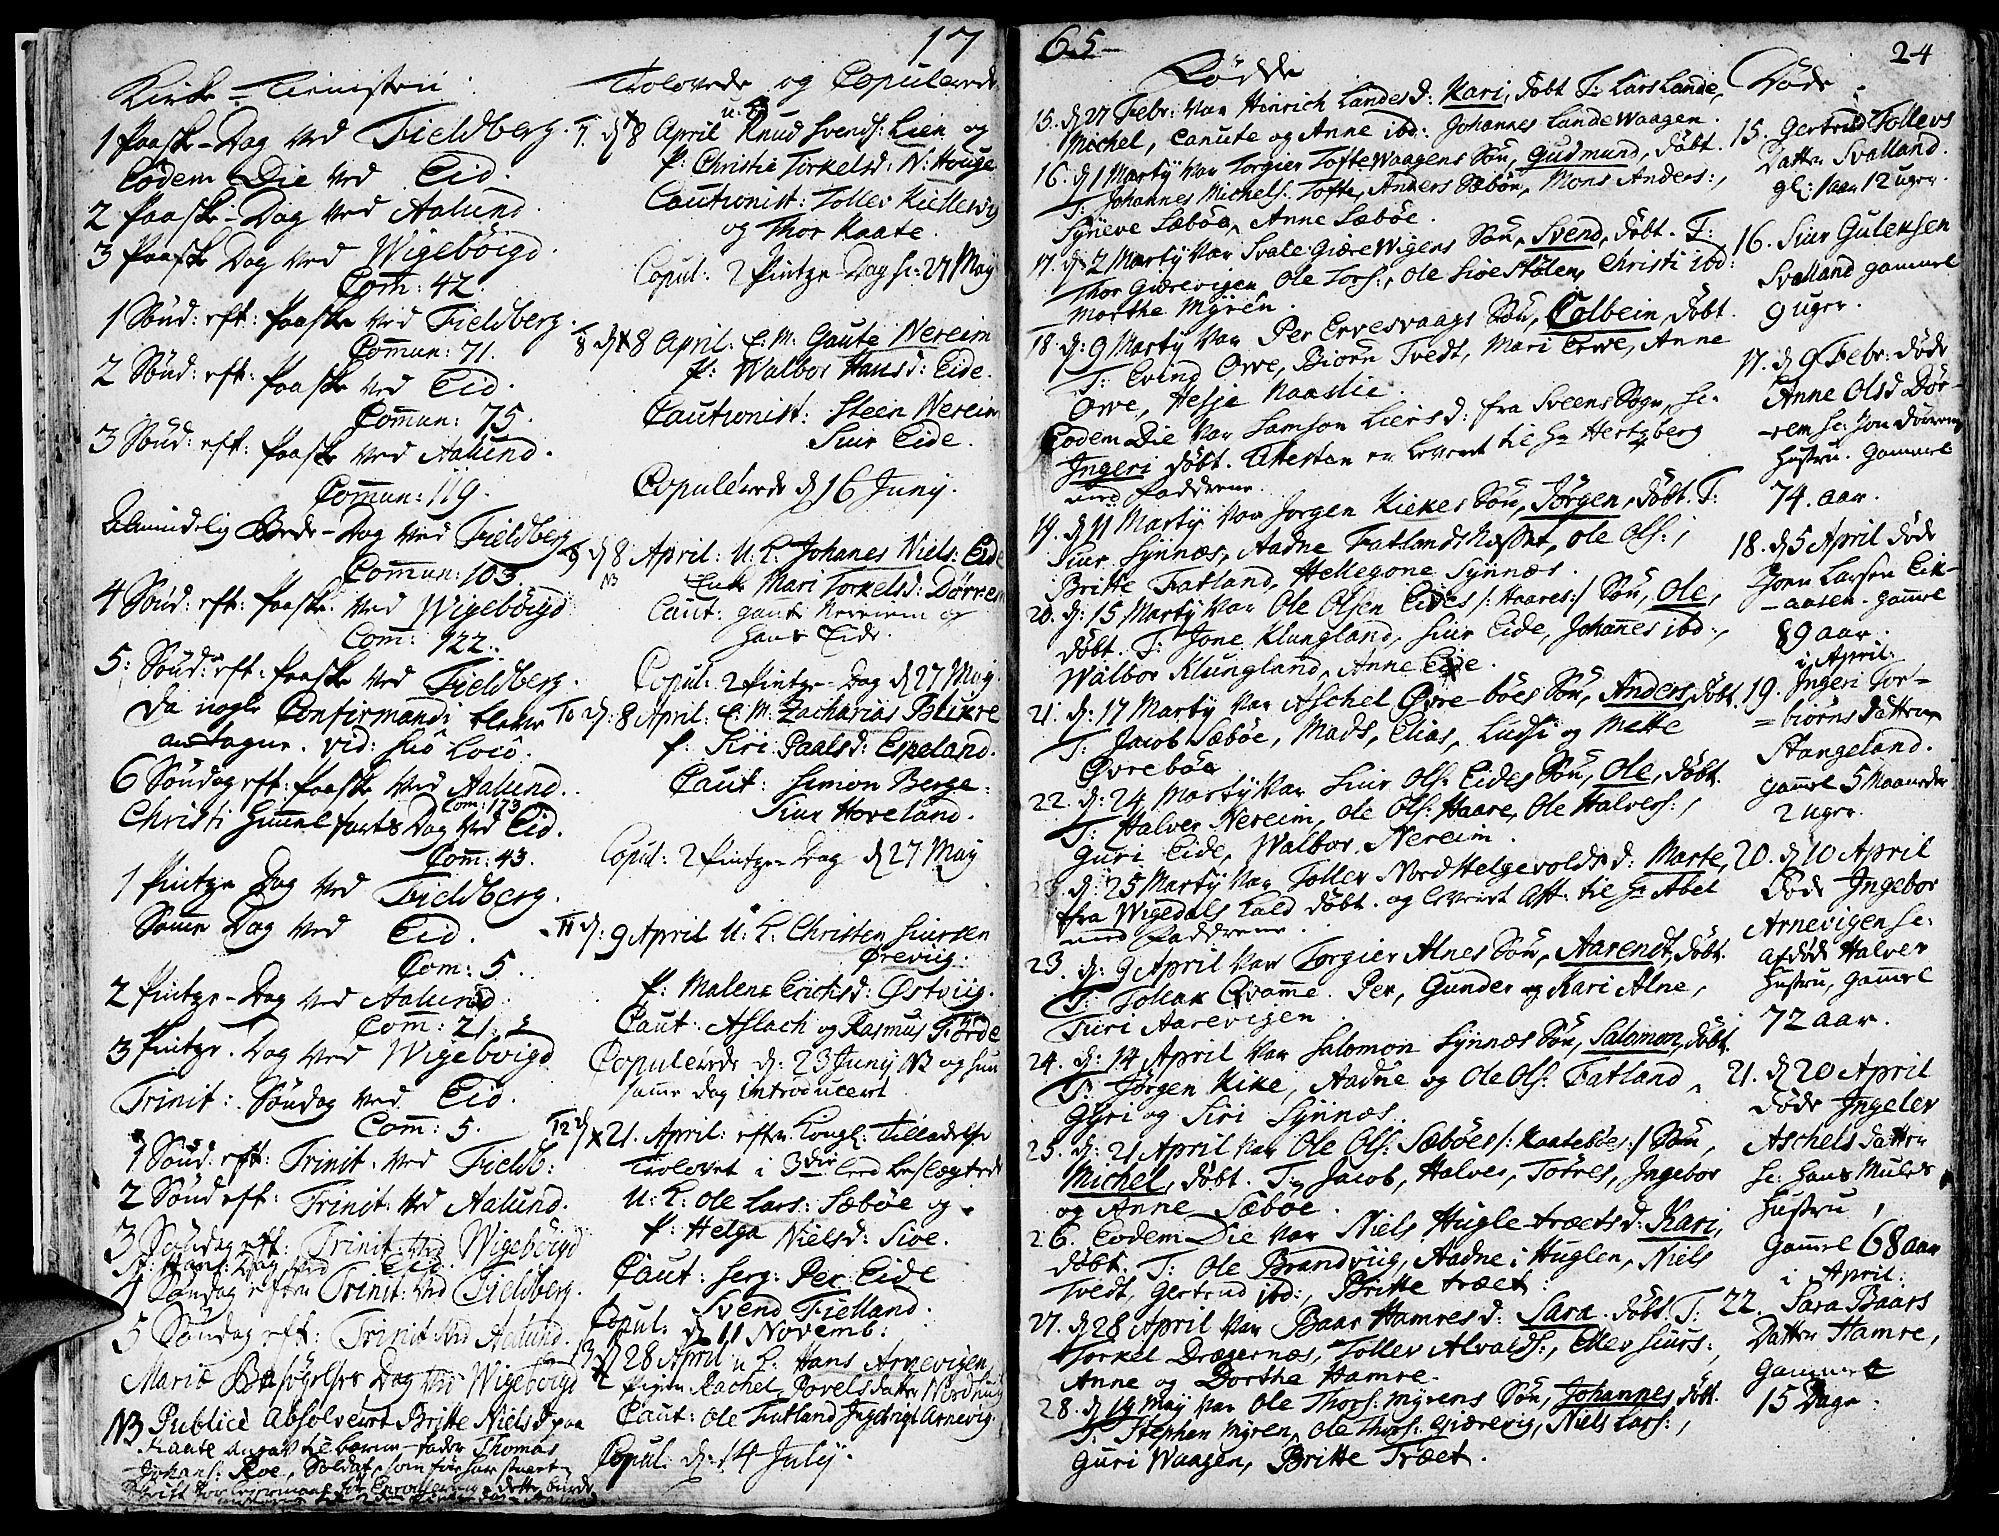 17
Kirke-Tienisten:
1 Paaske-Dag ved Fieldberg.
Eodem Die ved Eid.
2 Paaske-Dag ved Aalund.
3 Paaske Dag ved Wigebøigd.
Com: 42
1 Sønd: eft: Paaske ved Fieldberg.
Commun: 71.
2 Sønd: eft: Paaske ved Eid.
Commun: 75.
3 Sønd: eft: Paaske ved Aalund.
Commun: 119.
Almindelig Bede-Dag ved Fieldberg
Commun: 103.
4 Sønd: eft: Paaske ved Wigebøigd
Com: 122.
5: Sønd: eft: Paaske ved Fieldberg.
da nogle Confirmandi bleve
antagne. vid: suo Loco.
6 Søndag eft: Paaske ved Aalund.
Com: 173
Christi Himmelfarts Dag ved Eid.
Com: 43.
1 Pintze Dag ved Fieldberg.
Samme Dag ved Eid.
Com: 5.
2 Pintze-Dag ved Aalund
Com: 21.
3 Pintze-Dag ved Wigebøigd
Trinit: Søndag ved Eid.
Com: 5.
1 Sønd: eft: Trinit: ved Fieldb:
2 Sønd eft: Trinit: ved Aalund.
3 Søndag eft: Trinit: ved Wigebøigd
St: Hans: Dag ved Eid
4 Søndag eften Trinit: ved Fieldberg.
5 Søndag eft: Trinit ved Aalund.
Mariæ Besøgelses Dag ved Wigebøigd
NB Publicè Absolveert Britte Nielsd paa
Kaate angav til barne-fader Thomas
Johans: Roe, Soldat, som før har
Trolovede og Copulerede
7. d 8 April Knud Svends: Lien og
P: Christie Torkelsd: N: Houge
Cautionist: Toller Kiellevig
og Thor Kaate.
Copul: 2 Pintze-Dag sc: 27 May
8 d 8 April. E. M. Gaute Nereim
P: Walbor Hansd: Eide.
Cautionist: Steen Nereim
Siur Eide.
Copulerede d 16 Juny.
9 d 8 April: U. K. Johanes Niels: Eide
NB Enk Mari Torkelsd: Dørrem
Caut: gaut Nereim og
Hans Eide.
Copul: 2 Pintze-Dag d 27 May.
10 d: 8 April: E. M. Zacharias Blikre
P: Siri Paalsd: Espeland.
Caut: Simon Berge.
Siur Hoveland.
Copul: 2 Pintze-Dag d 27 May
11 d: 9 April U: K. Christen Siursen
Ørevig.
P: Malene Erichsd: Østviig.
Caut: Aslach og Rasmus Førde
Copulerede d: 23 Juny NB og hun
samme dag introduceret
12 d 21. April: efter Kongl: Tilladelse
Trolovet i 3die leed beslægtede
U: K: Ole Lars: Sæbøe og
P: Helga Nielsd: Sioe.
Caut: Serg: Per Eide
Svend Fielland.
Copul: d 11 Novemb:
13 d 28 April u K. Hans Arnevigen,
Pigen Rachel Povelsdatter Nordhug
Caut: Ole Fatland Ingebrigt Arnevig.
Copul: d: 14 July.
65
24
Fødde
15. d 27 Febr: var Hinrich Landes d: Kari, døbt T: Lars Lande,
Michel, Canute og Anne ibd: Johannes Landewaagen.
16. d 1 Marty var Torgier Toftewaagens Søn, Gudmund, døbt.
T: Johannes Michels: Tofte, Anders Sæbøe, Mons Anders:,
Syneve Sæbøe, Anne Sæbøe.
17. d: 2 Marty var Svale Giærewigens Søn, Svend, døbt. T:
Thor Giærevigen, Ole Tors:, Ole Sioestølen, Christi ibd:
Marthe Myren.
18. d: 9 Marty var Per Ervesvaags Søn, Colbein, døbt.
T: Evind Øvre, Biørn Tvedt, Mari Erve, Anne
Øvre, Helje Naaslie.
Eodem Die var Samson Liers d: fra Sveens Sogn, sc.
Ingeri døbt. Attesten er leveret til Hr Hertzberg
med Fadderne.
19. d 11 Marty var Jørgen Kiekes Søn, Jørgen, døbt. T:
Siur Synnæs, Aadne Fatlandsnæsset, Ole Ols:,
Britte Fatland, Hellegone Synnæs.
20. d: 15 Marty var Ole Olsen Eides /: Haares:/ Søn, Ole,
døbt. T: Jone Klungland, Siur Eide, Johannes ibd:,
Walbor Klungland, Anne Eide.
21. d: 17 Marty var Aschel Øvre-bøes Søn, Anders, døbt.
T: Jacob Sæbøe, Mads, Elias, Ludsi og Mette
Øvrebøe
22. d: 24 Marty var Siur Ols: Eides Søn, Ole, døbt.
T: Halver Nereim, Ole Ols: Haare, Ole Halvers:,
Guri Eide, Walbor Nereim.
d: 25 Marty var Toller Nord Helgevolds d: Marte,
fra Wigedals Kald døbt. og leveret Att: til Hr Abel
med Fadderne.
23. d: 9 April var Torgier Alnes Søn, Aarendt, døbt.
T: Tollak Qvamme. Per, Gunder og Kari Alne,
Turi Aarevigen
24. d: 14 April var Salomon Synnæs Søn, Salomon, døbt.
T: Jørgen Kike, Aadne og Ole Ols: Fatland,
Gyri og Siri Synnæs.
25. d: 21 April var Ole Ols: Sæbøes /: Kaatebøes:/ Søn,
Michel, døbt. T: Jacob, Halver, Tørres, Ingebor
og Anne Sæbøe.
26. Eodem Die var Niels Hugle-træets d: Kari,
døbt. T: Ole Brandviig, Aadne i Huglen, Niels
Tvedt, Gertrud ibd:, Britte træet.
27. d 28 April var Baar Hamres d: Sara døbt. T:
Torkel Drægernæs, Toller Alvalds:, Eller Siurs:,
Anne og Dorthe Hamre.
28. d 19 May var Ole Thors: Myrens Søn, Johannes døbt.
T: Stephen Myren, Ole Thors: Giærevig, Niels Lars:,
Guri Waagen, Britte Træet.
Døde
15. Gertrud Tollevs
Datter Svalland.
gl: 1 aar 12 uger.
16. Siur Guleksen
Svalland gammel
9 uger.
17. d 9 Febr: døde
Anne Olsd Dør-
rem sc: Jon Dørrems
Hustru. gammel
74. aar.
18. d 5 April døde
Joen Larsen Eik-
-aasen. gammel
89 aar.
i April.
19. Ingeri Tor-
=biørns Datter
Stangeland.
gammel 5 Maaneder
2 uger.
20. d 10 April
døde Ingebor
Arnevigen sc:
afdøde Halver
Hustru, gammel
72 aar.
21. d 20 April
døde Ingelev
Aschels datter
sc: Hans Mulds
Hustru,
gammel 68 aar
i April.
22. Sara Baars
Datter Hamre,
gammel
15 Dage.